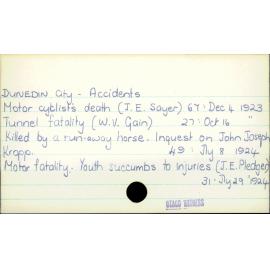 DUNEDIN City - Accidents
Motor cyclist's death (J.E. Sayer) 67: Dec 4 1923
Tunnel fatality (W.V. Gain) 27: Oct 16 "
Killed by a run-away horse. Inquest on John Joseph
Kropp. 49: Jly 8 1924
Motor fatality. Youth succumbs to injuries (J.E. Pledger)
31: Jly 29 1924
OTAGO WITNESS